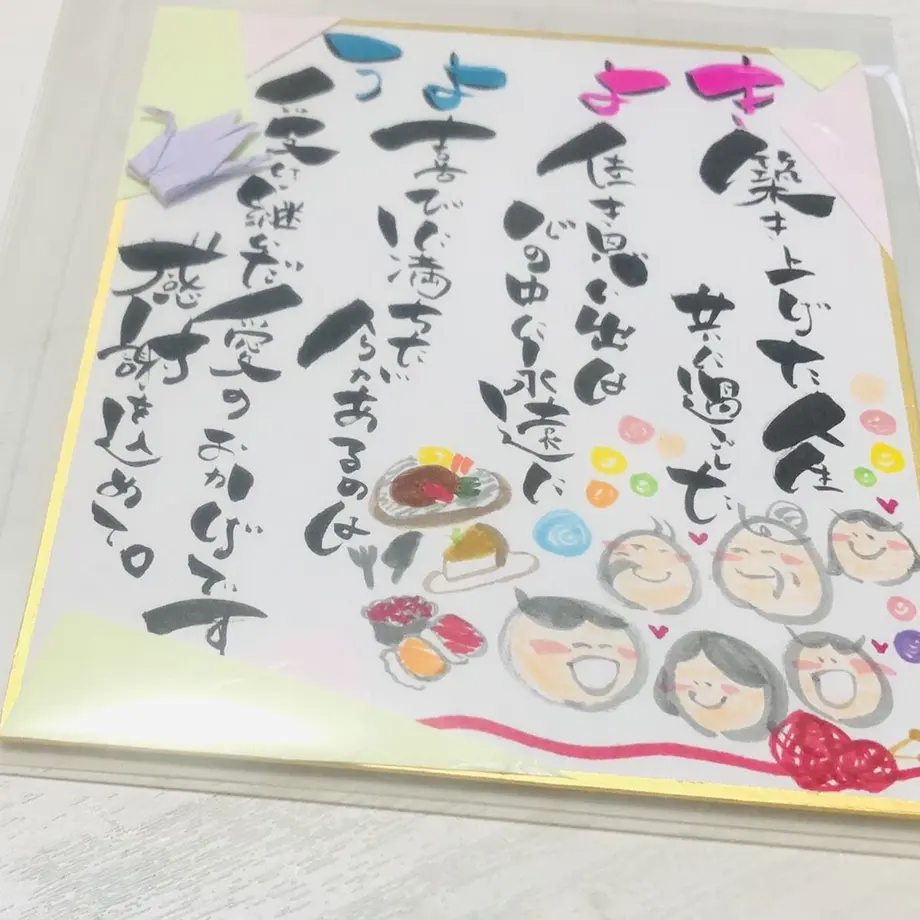 き
築き上げた人生
共に過ごした
よ
佳き思い出は
心の中に永遠に
よ
喜びに満ちた
今があるのは
う
受け継いだ
愛のおかげです
感謝を込めて。